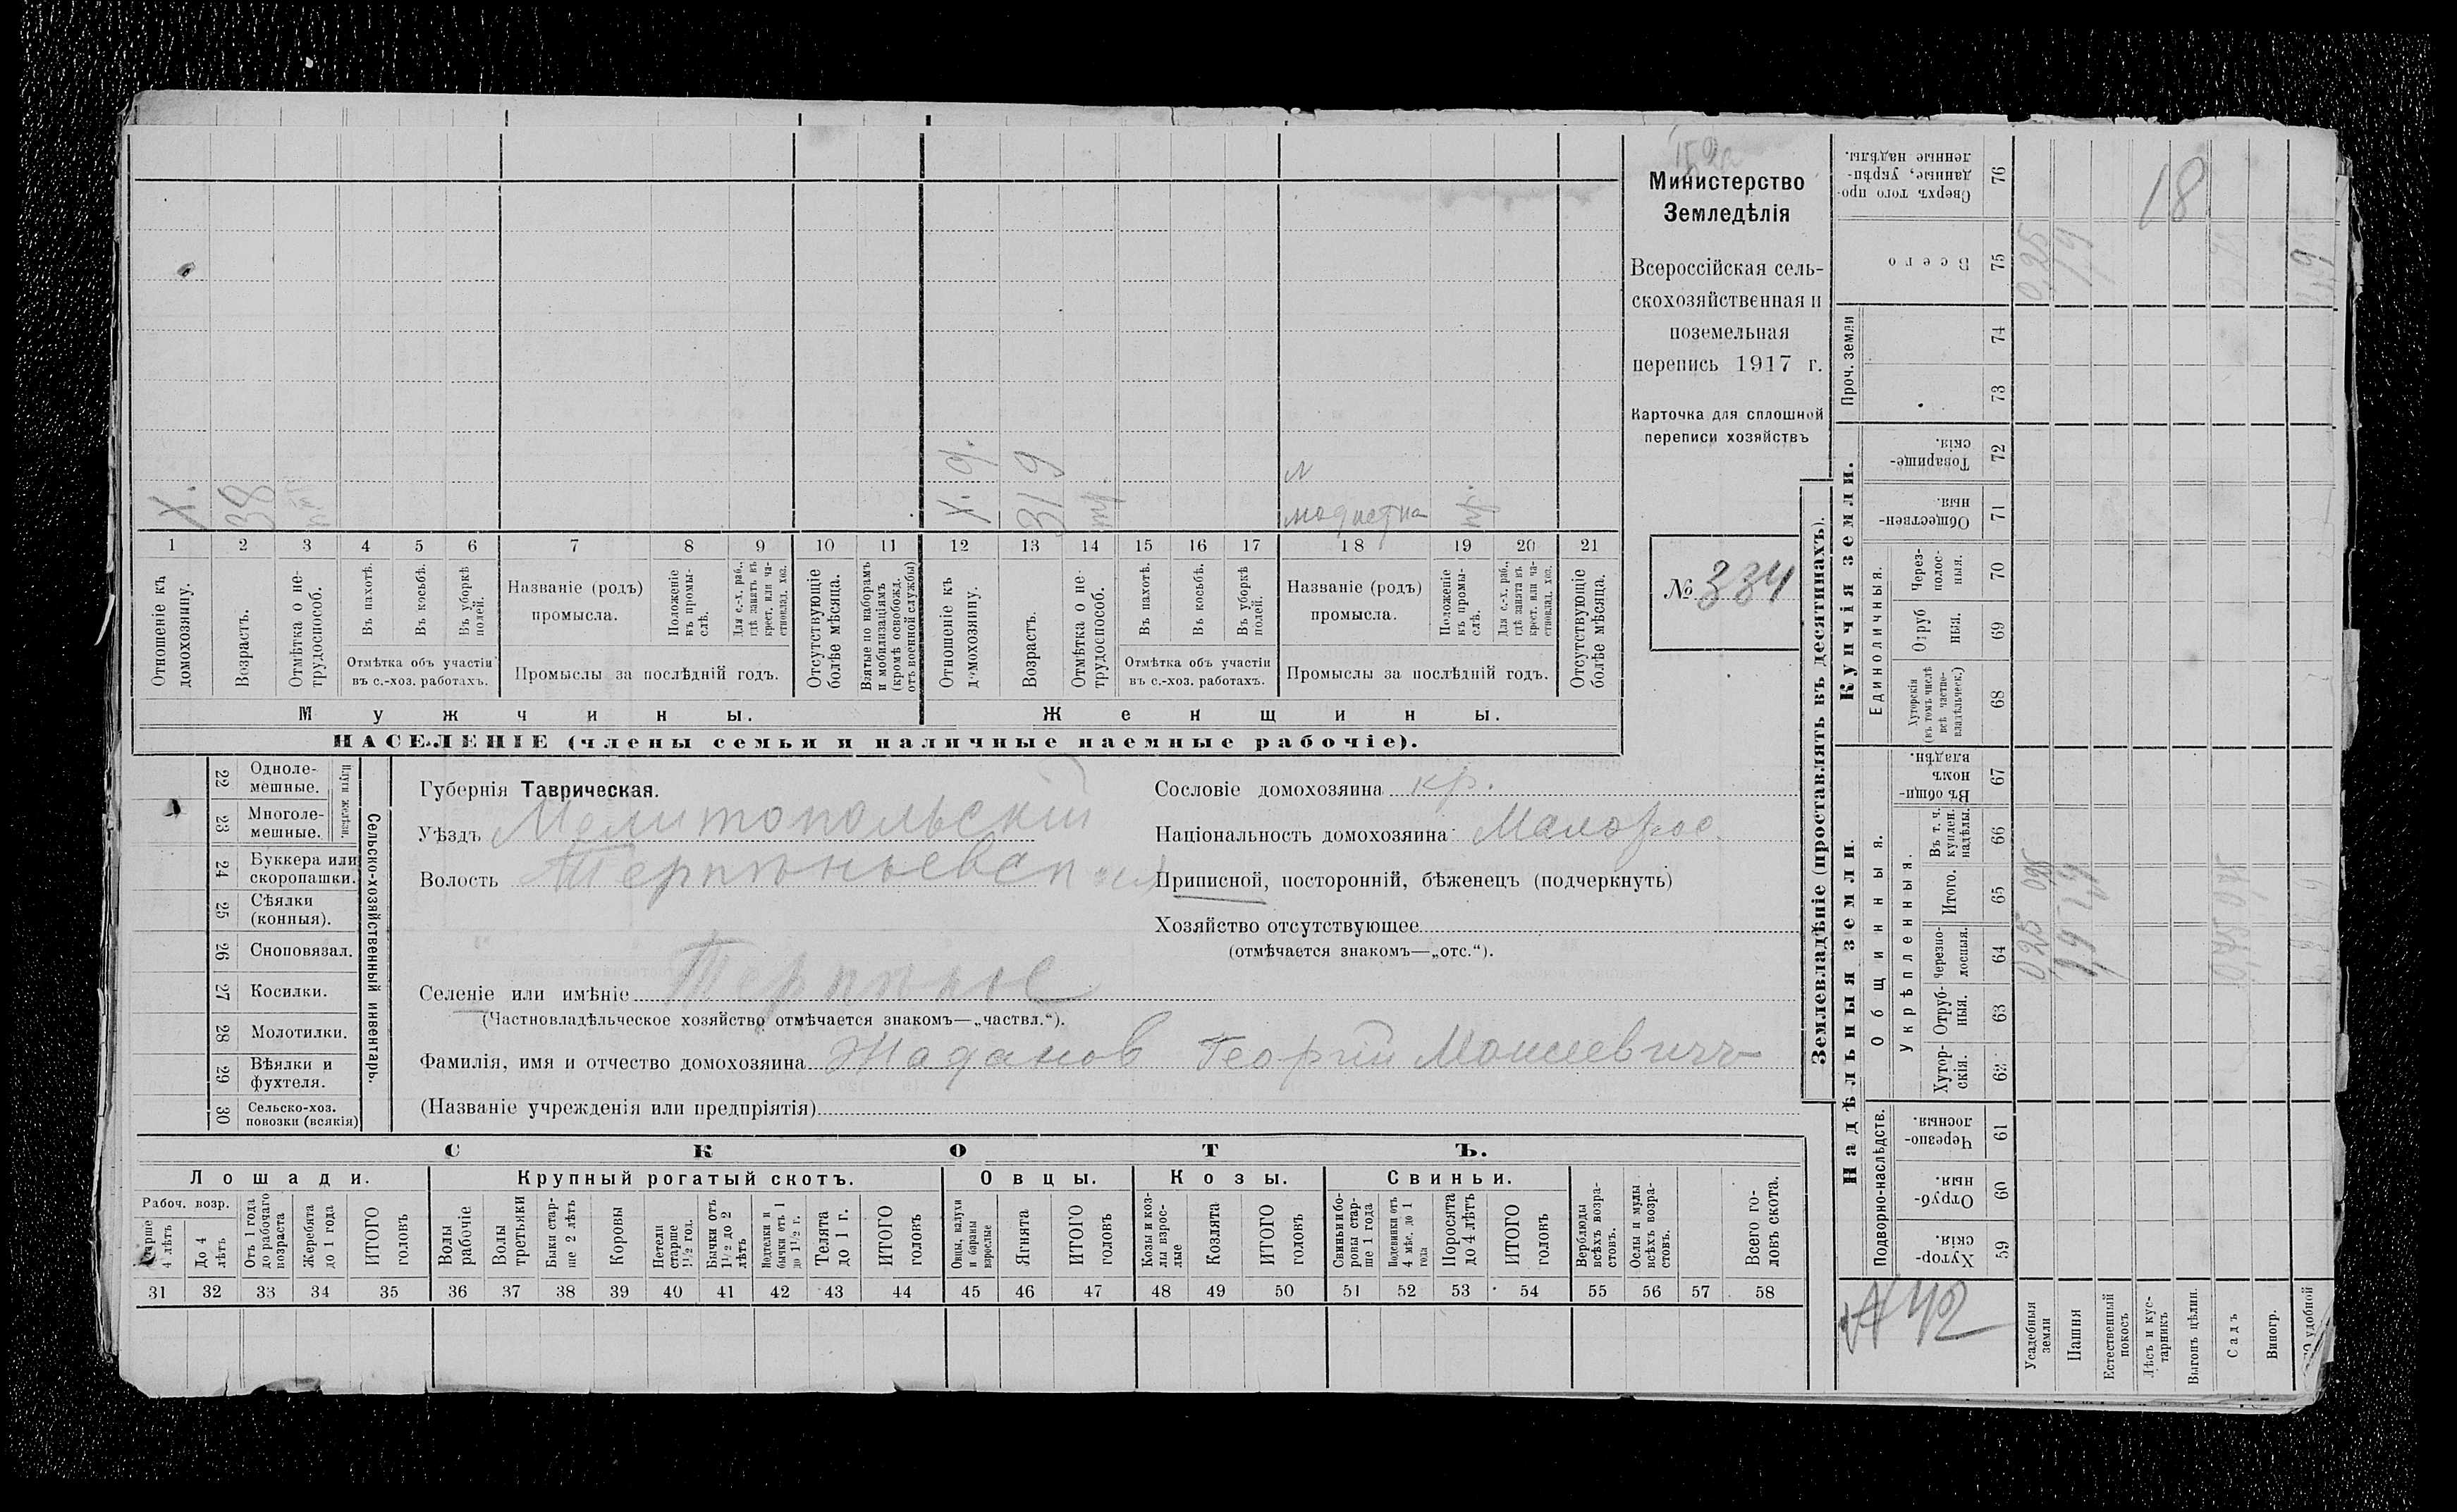 Министерство
Земледѣлія
Всероссійская сель-
скохозяйственная и
поземельная
перепись 1917 г.
Карточка для сплошной
переписи хозяйствъ
№ 334
Х. 38
Х. 31
д. 9
модистка
1 2 3 4 5 6 7 8 9 10 11 12 13 14 15 16 17 18 19 20 21
Отношеніе къ домохозяину.
Возрастъ.
Отмѣтка о не-трудоспособ.
Въ пахотѣ.
Въ косьбѣ.
Въ уборкѣ полей.
Отмѣтка объ участіи
въ с.-хоз. работахъ.
Названіе (родъ)
промысла.
Положеніе въ промы-слѣ.
Для с.-х. раб., гдѣ занятъ въ крест. или ча-стновлад. хоз.
Промыслы за послѣдній годъ.
Отсутствующіе болѣе мѣсяца.
Взятые по наборамъ и мобилизаціямъ (кромѣ освобожд. отъ военной службы)
Отношеніе къ домохозяину.
Возрастъ.
Отмѣтка о не-трудоспособ.
Въ пахотѣ.
Въ косьбѣ.
Въ уборкѣ полей.
Отмѣтка объ участіи
въ с.-хоз. работахъ.
Названіе (родъ)
промысла.
Положеніе въ промы-слѣ.
Для с.-х. раб., гдѣ занята въ крест. или ча-стновлад. хоз.
Промыслы за послѣдній годъ.
Отсутствующіе болѣе мѣсяца.
Мужчины.
Женщины.
НАСЕЛЕНІЕ (члены семьи и наличные наемные рабочіе).
22 Одноле-мешные.
23 Многоле-мешные.
Плуги желѣзн.
24 Буккера или скоропашки.
25 Сѣялки (конныя).
26 Сноповязал.
27 Косилки.
28 Молотилки.
29 Вѣялки и фухтеля.
30 Сельско-хоз. повозки (всякія)
Сельско-хозяйственный инвентарь.
Губернія Таврическая.
Уѣздъ Мелитопольскій
Волость
Селеніе или имѣніе Терпѣніе
(Частновладѣльческое хозяйство отмѣчается знакомъ—„частвл.“).
Фамилія, имя и отчество домохозяина Жаданов Георгій Моисеевичъ
(Названіе учрежденія или предпріятія)
Сословіе домохозяина кр.
Національность домохозяина Малорос.
Приписной, посторонній, бѣженецъ (подчеркнуть)
Хозяйство отсутствующее
(отмѣчается знакомъ—„отс.“).
СКОТЪ.
Лошади.
Крупный рогатый скотъ.
Овцы.
Козы.
Свиньи.
Рабоч. возр.
Старше 4 лѣтъ
До 4 лѣтъ
Отъ 1 года до рабочаго возраста
Жеребята до 1 года
ИТОГО головъ
Волы рабочіе
Волы третьяки
Быки стар-ше 2 лѣтъ
Коровы
Нетели старше 1½ год.
Бычки отъ 1½ до 2 лѣтъ
Подтелки и бычки отъ 1 до 1½ г.
Телята до 1 г.
ИТОГО головъ
Овцы, валухи и бараны взрослые
Ягнята
ИТОГО головъ
Козы и коз-лы взрос-лые
Козлята
ИТОГО головъ
Свиньи и бо-ровы стар-ше 1 года
Подсвинки отъ 4 мѣс. до 1 года
Поросята до 4 лѣтъ
ИТОГО головъ
Верблюды всѣхъ возра-стовъ.
Ослы и мулы всѣхъ возра-стовъ.
Всего го-ловъ скота.
31 32 33 34 35 36 37 38 39 40 41 42 43 44 45 46 47 48 49 50 51 52 53 54 55 56 57 58
Землевладѣніе (проставлять въ десятинахъ).
Надѣльныя земли.
Купчія земли.
Проч. земли
Подворно-наслѣдств.
Общинныя.
Укрѣпленныя.
Единоличныя.
Хутор-скія. 59
Отруб-ныя. 60
Черезпо-лосныя. 61
Хутор-скія. 62
Отруб-ныя. 63
Черезпо-лосныя. 64
Итого. 65
Въ т. ч. куплен. надѣлы. 66
Въ общи-номъ владѣн. 67
Хуторскія (въ томъ числѣ всѣ частно-владѣльческ.) 68
Отруб ныя. 69
Через-полос-ныя. 70
Обществен-ныя. 71
Товарище-скія. 72
73
74
Всего 75
Сверхъ того про-данные, укрѣп-ленные надѣлы. 76
18
0,25
1,9
025
42
Усадебныя земли
Пашня
Естественный покосъ
Лѣсъ и кус-тарникъ
Выгонъ цѣлин.
Садъ
Виногр.
удобной